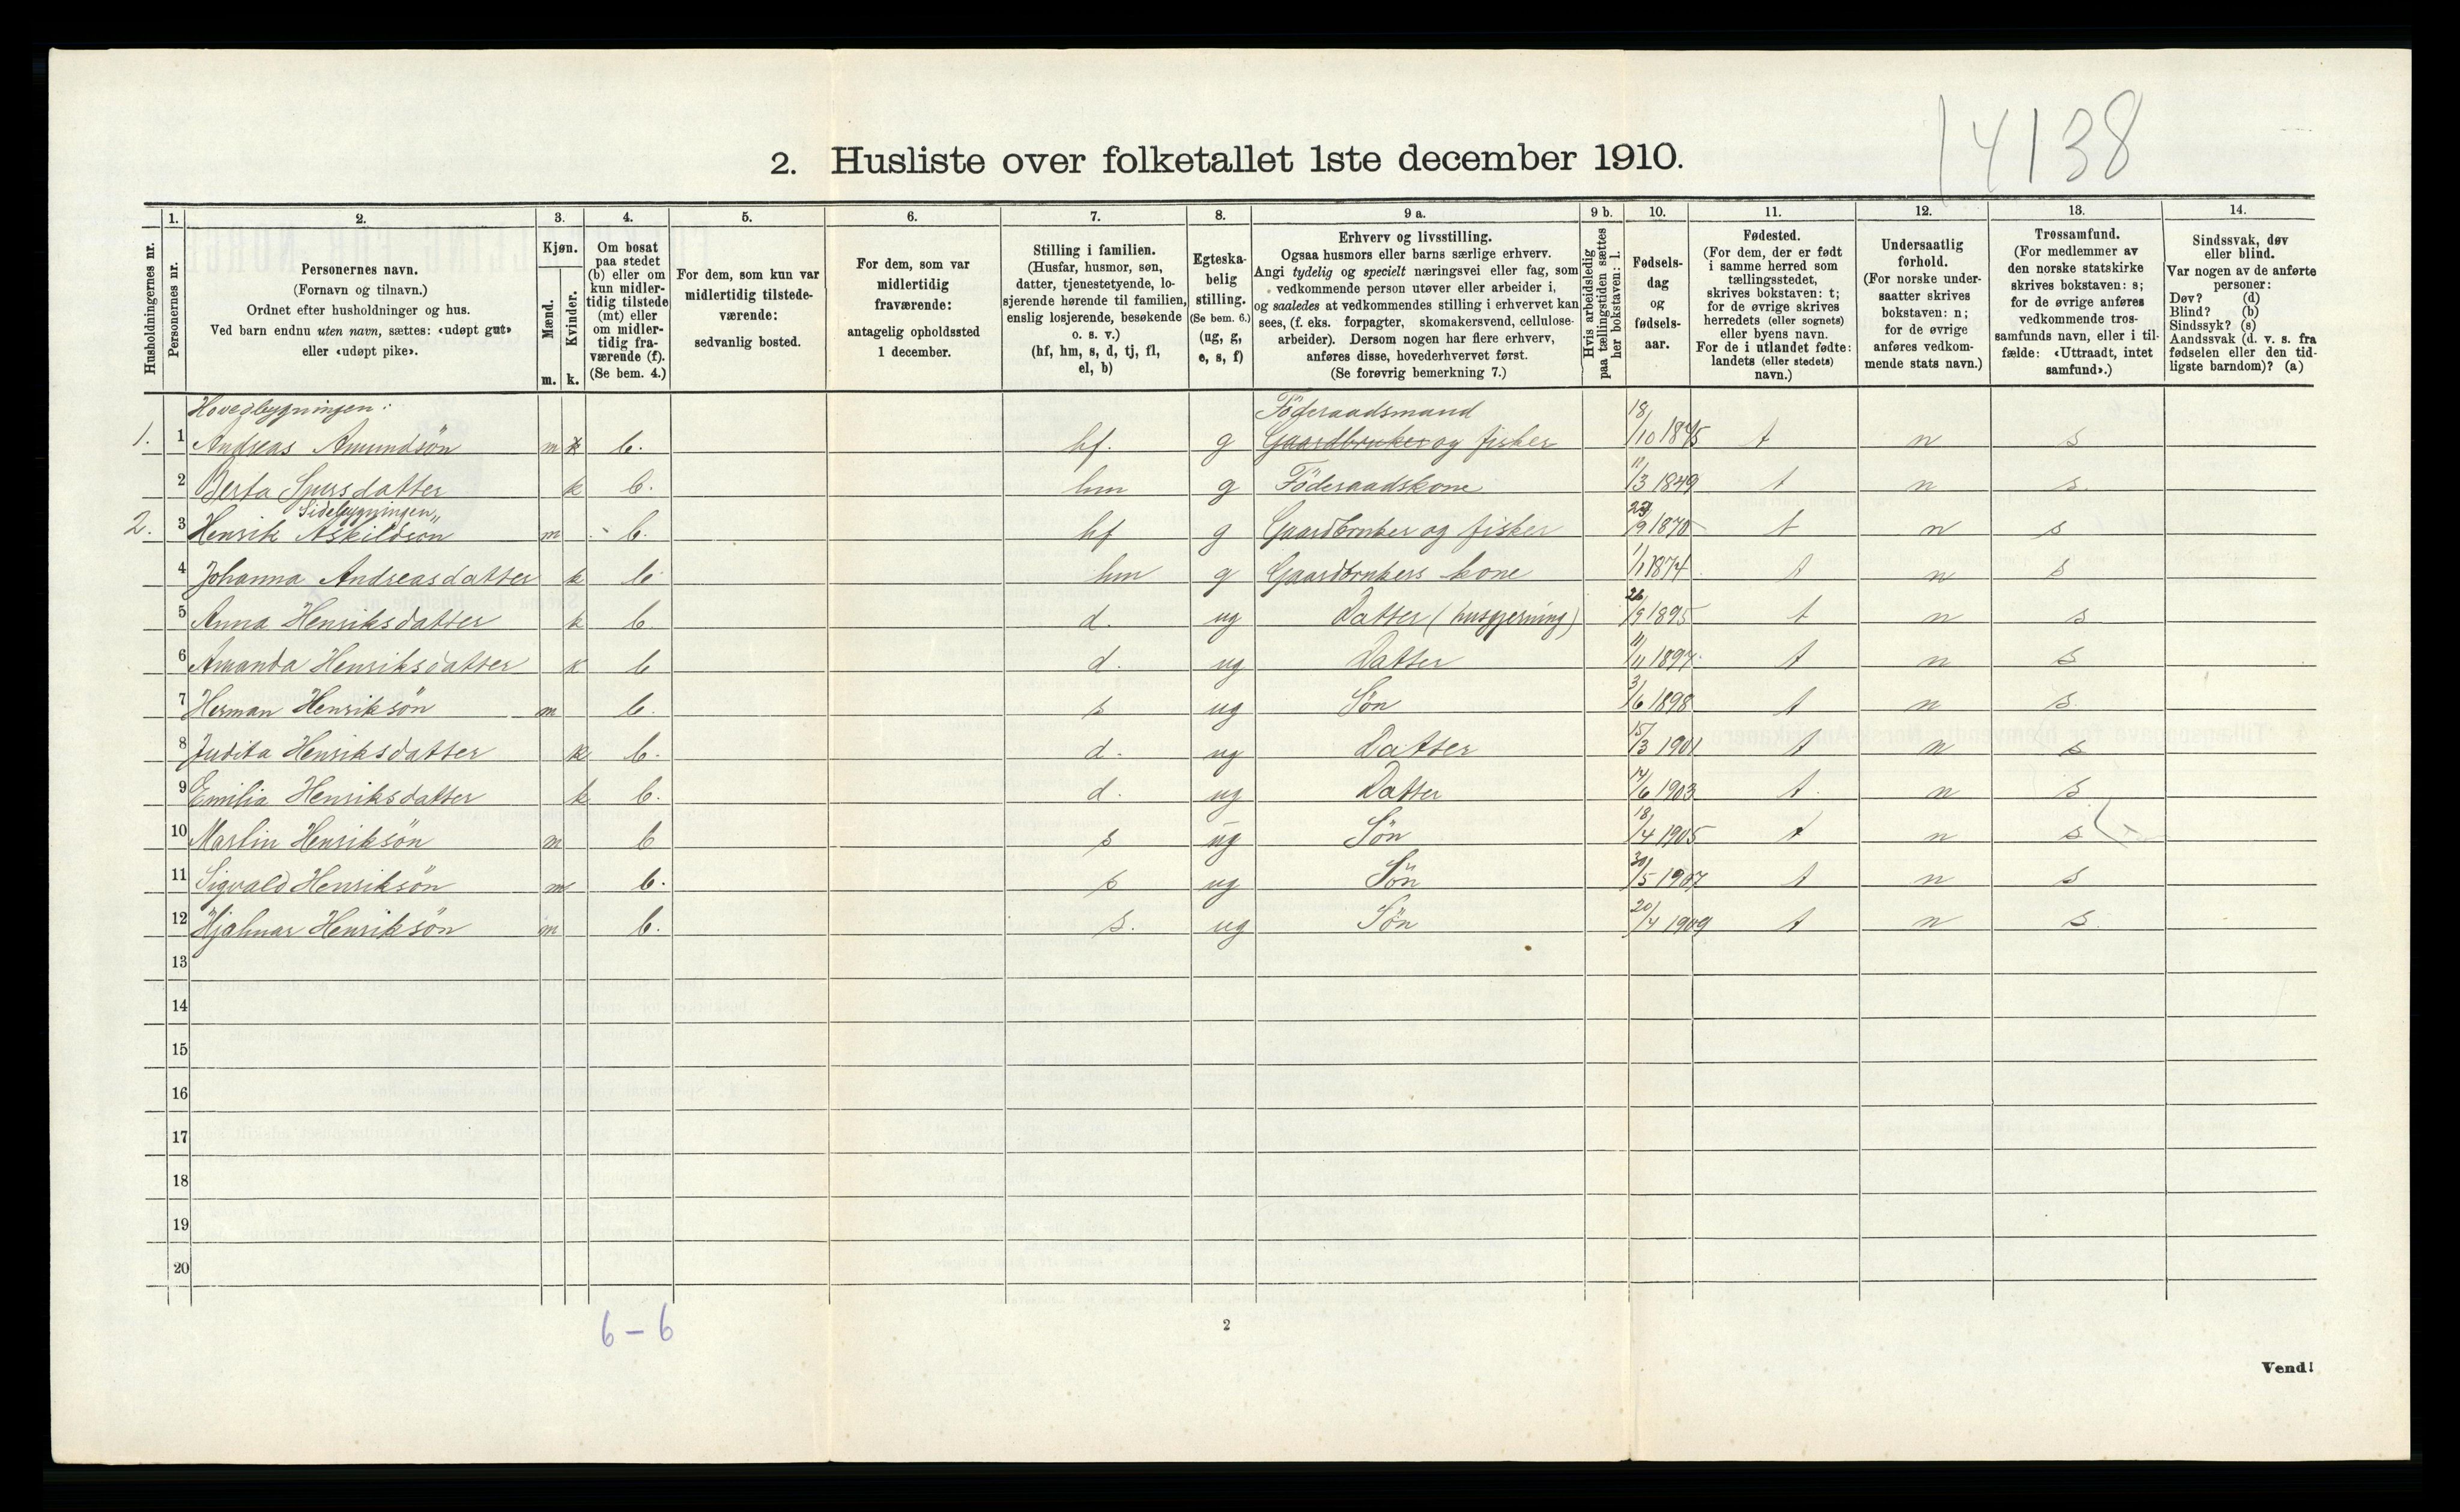 14138
2. Husliste over folketallet 1ste december 1910.
Husholdningernes nr.
1. Personernes nr.
2. Personernes navn.
(Fornavn og tilnavn.)
Ordnet efter husholdninger og hus.
Ved barn endnu uten navn, sættes: «udøpt gut»
eller «udøpt pike».
3. Kjøn.
Mænd. m.
Kvinder. k.
4. Om bosat
paa stedet
(b) eller om
kun midler-
tidig tilstede
(mt) eller
om midler-
tidig fra-
værende (f).
(Se bem. 4.)
5. For dem, som kun var
midlertidig tilstede-
værende:
sedvanlig bosted.
6. For dem, som var
midlertidig
fraværende:
antagelig opholdssted
1 december.
7. Stilling i familien.
(Husfar, husmor, søn,
datter, tjenestetyende, lo-
sjerende hørende til familien,
enslig losjerende, besøkende
o. s. v.)
(hf, hm, s, d, tj, fl,
el, b)
8. Egteska-
belig
stilling.
(Se bem. 6.)
(ug, g,
e, s, f)
9 a. Erhverv og livsstilling.
Ogsaa husmors eller barns særlige erhverv.
Angi tydelig og specielt næringsvei eller fag, som
vedkommende person utøver eller arbeider i,
og saaledes at vedkommendes stilling i erhvervet kan
sees, (f. eks. forpagter, skomakersvend, cellulose-
arbeider). Dersom nogen har flere erhverv,
anføres disse, hovederhvervet først.
(Se forøvrig bemerkning 7.)
9 b. Hvis arbeidsledig
paa tællingstiden sættes
her bokstaven: l.
10. Fødsels-
dag
og
fødsels-
aar.
11. Fødested.
(For dem, der er født
i samme herred som
tællingsstedet,
skrives bokstaven: t;
for de øvrige skrives
herredets (eller sognets)
eller byens navn.
For de i utlandet fødte:
landets (eller stedets)
navn.)
12. Undersaatlig
forhold.
(For norske under-
saatter skrives
bokstaven: n;
for de øvrige
anføres vedkom-
mende stats navn.)
13. Trossamfund.
(For medlemmer av
den norske statskirke
skrives bokstaven: s;
for de øvrige anføres
vedkommende tros-
samfunds navn, eller i til-
fælde: «Uttraadt, intet
samfund».)
14. Sindssvak, døv
eller blind.
Var nogen av de anførte
personer:
Døv? (d)
Blind? (b)
Sindssyk? (s)
Aandssvak (d. v. s. fra
fødselen eller den tid-
ligste barndom)? (a)
Hovedbygningen: Föderaadsmand
1. 1 Andreas Amundsön m k b. hf. g Gaardbruker og fisker 18/10 1845 t n s
2 Berta Sjursdatter k b. hm g Föderaadskone 11/3 1849 t n s.
Sidebygningen
2. 3 Henrik Askildsön m b. hf g Gaardbruker og fisker /9 1870 t n s
4 Johanna Andreasdatter k b hm g Gaardbrukers kone 1/1 1874 t n s
5 Anna Henriksdatter k b d. ug Datter (husgjerning) 26/9 1895 t n s
6 Amanda Henriksdatter k b d. ug Datter 11/11 1897 t n s
7 Herman Henriksön m b. s ug Sön 3/6 1898 t n s.
8 Judita Henriksdatter k b. d. ug Datter 15/3 1901 t n s
9 Emilia Henriksdatter k b. d. ug Datter 14/6 1903 t n s
10 Martin Henriksön m b s ug Sön 18/4 1905 t n s
11 Sigvald Henriksön m b. s ug Sön 30/5 1907 t n s
12 Hjalmar Henriksön m b. s. ug Sön 20/4 1909 t n s.
13
14
15
16
17
18
19
20
6 - 6
2
Vend!